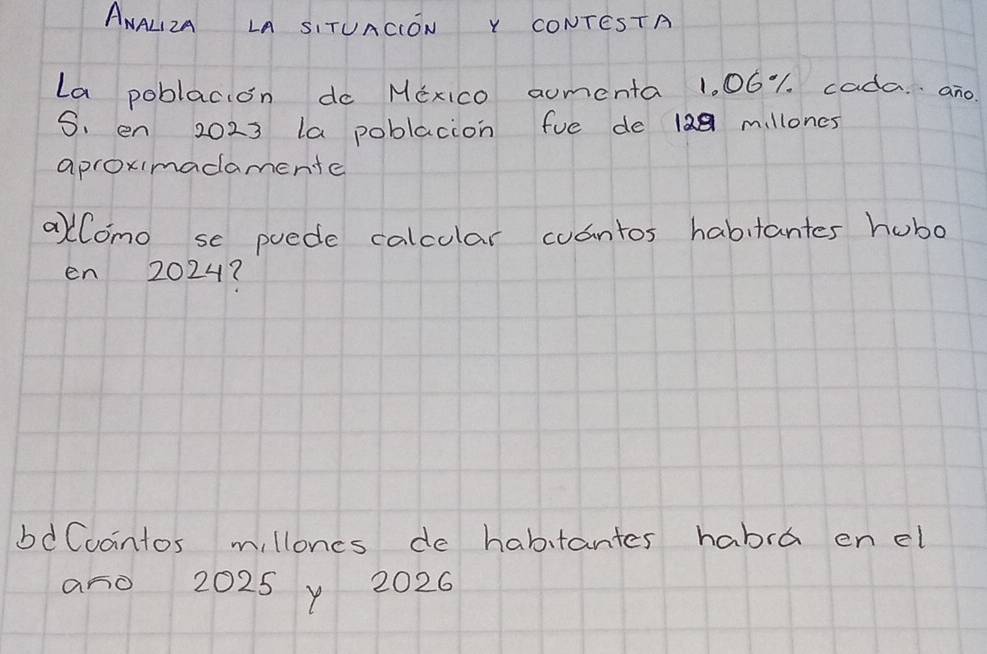 ANALIZA LA SITUACIÓN Y CONTESTA
La población de México aumenta 1.06% cada.. año.
Si en 2023 la población fue de millones
aproximadamente
a) ¿Cómo se puede calcular cuántos habitantes hubo
en 2024?
b) ¿Cuántos millones de habitantes habrá en el
año 2025 y 2026